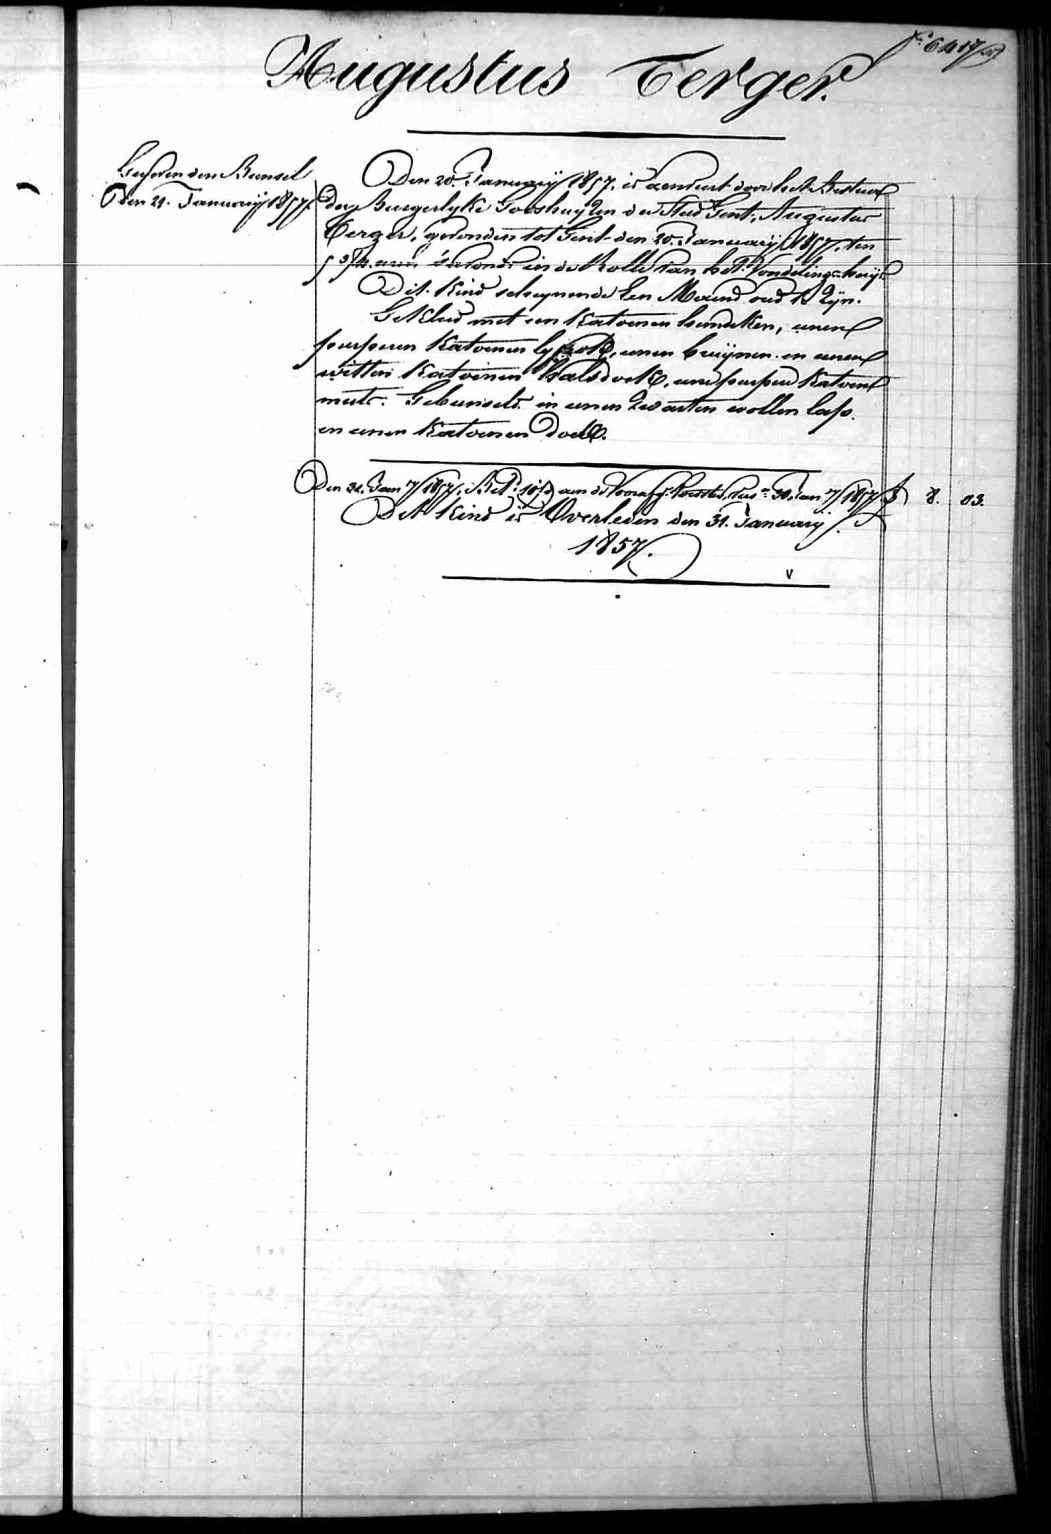 Augustus Terger.
Den 21. January 1857.
Den 20. January 1857. is aenveert door het Bestuer
der Burgerlyke Godshuyzen der Stad Gent, Augustus
Terger, gevonden tot Gent den 20. January 1857. ten
5 3/4 uren s'avonds in de Rolle van het Vondelingshuys
Dit Kind scheynende Een Maend oud te zyn.
Gekleed met een Katoenen hemdeken, eenen
purperen Katoenen lyfrok, eenen bruynen en eenen
witten Katoenen halsdoek, eene purpere Katoene
muts. Gebunselt in eenen Zwarten wollen lap.
en eenen Katoenen Doek.
Den 31. Jan 1857. Bet. aen de 30 Jan 1857 8. 03.
Dit Kind is Overleden den 31. January
1857.